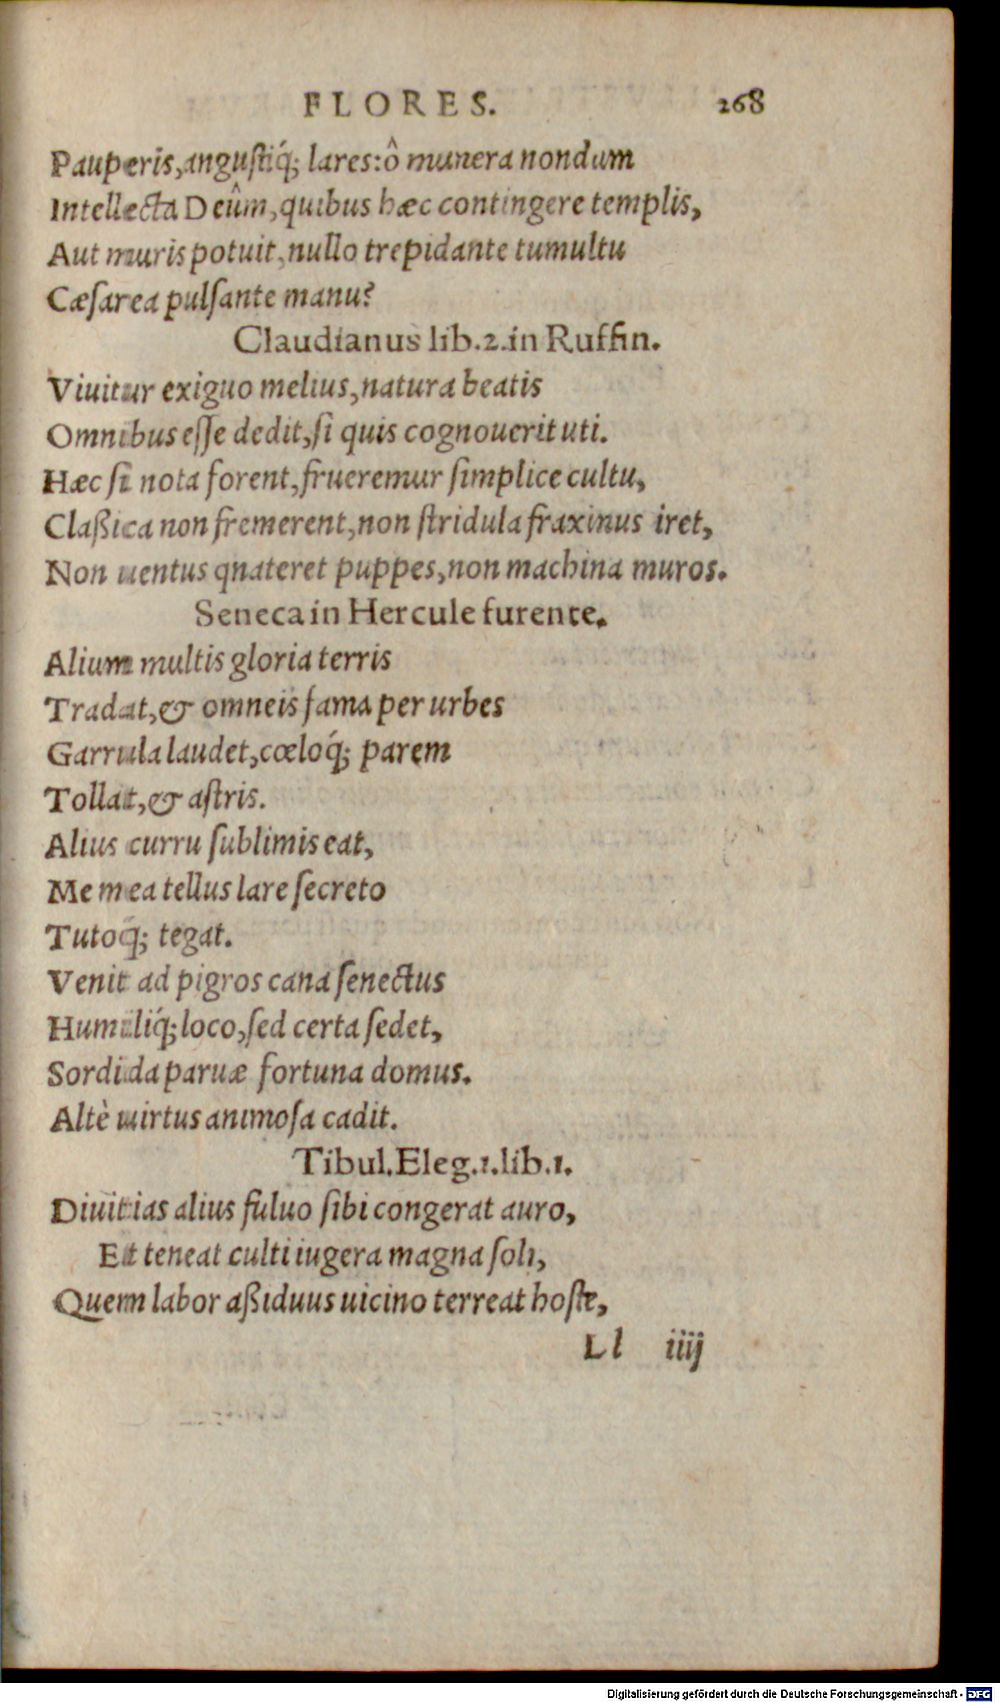 FLORES. 268
Pauperis,angustiq́; lares:ô munera nondum
Intellecta Deûm,quibus hæc contingere templis,
Aut muris potuit,nullo trepidante tumultu
Cæſarea pulſante manu?
Claudianus lib.2.in Ruffin.
Viuitur exiguo melius,natura beatis
Omnibus eſſe dedit,ſi quis cognouerit uti.
Hæc ſi nota forent,frueremur ſimplice cultu,
Claßica non fremerent,non ſtridula fraxinus iret,
Non uentus qnateret puppes,non machina muros.
Seneca in Hercule furente.
Alium multis gloria terris
Tradat,& omneis fama per urbes
Garrula laudet,cœloq́; parem
Tollat,& aſtris.
Alius curru ſublimis eat,
Me mea tellus lare ſecreto
Tutoq́; tegat.
Venit ad pigros cana ſenectus
Humiliq́; loco,ſed certa ſedet,
Sordida paruæ fortuna domus.
Altè uirtus animoſa cadit.
Tibul.Eleg.1.lib.1.
Diuitias alius fuluo ſibi congerat auro,
Et teneat culti iugera magna ſoli,
Quem labor aßiduus uicino terreat hoſte,
Ll iiij
Digitalisierung gefördert durch die Deutsche Forschungsgemeinschaft - DFG